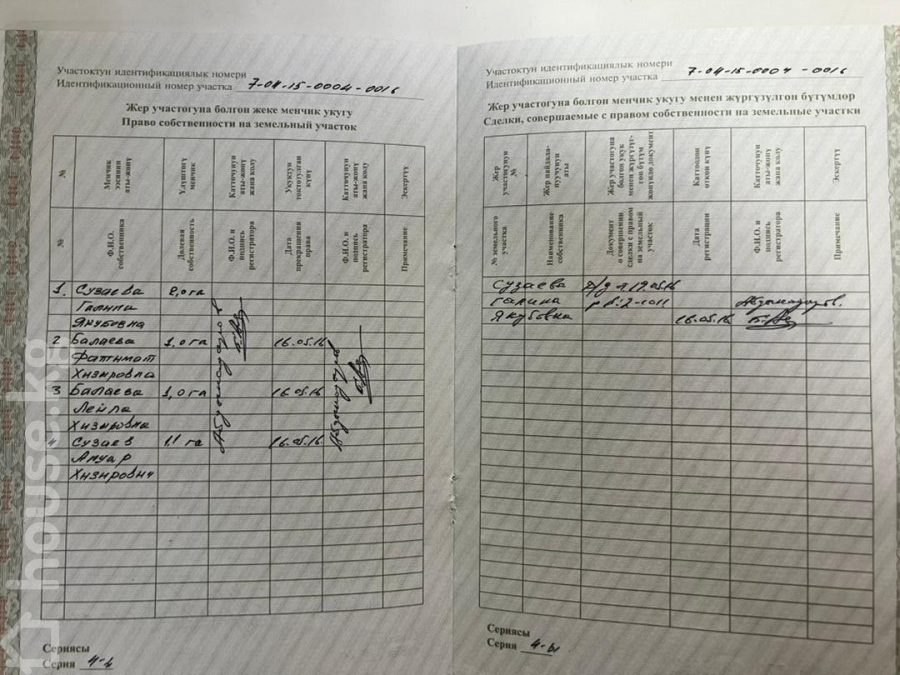 Участоктун идентификациялык номери
Идентификационный номер участка 7-04-15-0004-0016
Жер участогуна болгон жеке менчик укугу
Право собственности на земельный участок
№
Менчик ээсинин аты-жөнү
Үлүштүү менчик
Каттоочунун аты-жөнү жана колу
Укуктун токтотулган күнү
Каттоочунун аты-жөнү жана колу
Эскертүү
№
Ф.И.О. собственника
Долевая собственность
Ф.И.О. и подпись регистратора
Дата прекращения права
Ф.И.О. и подпись регистратора
Примечание
1. Сузаева 2,0 га
Галина
Якубовна
2 Балаева 1,0 га 16.05.16
Фатимат
Хизировна
3 Балаева 1,0 га 16.05.16
Лейла
Хизировна
4 Сузаев 1.1 га 16.05.16
Ануар
Хизирович
Сериясы
Серия 4-Ы
Участоктун идентификациялык номери
Идентификационный номер участка 7-04-15-0004-0016
Жер участогуна болгон менчик укугу менен жүргүзүлгөн бүтүмдөр
Сделки, совершаемые с правом собственности на земельные участки
Жер участкусунун №
Жер пайдалануучунун аты
Жер участогуна болгон укук менен жүргүзүлгөн бүтүм жөнүндө документ
Каттоодон өткөн күнү
Каттоочунун аты-жөнү жана колу
Эскертүү
№ земельного участка
Наименование собственника
Документ о совершении сделки с правом на земельный участок
Дата регистрации
Ф.И.О. и подпись регистратора
Примечание
Сузаева
Галина
Якубовна 16.05.16
Сериясы
Серия 4-Ы
house.kg